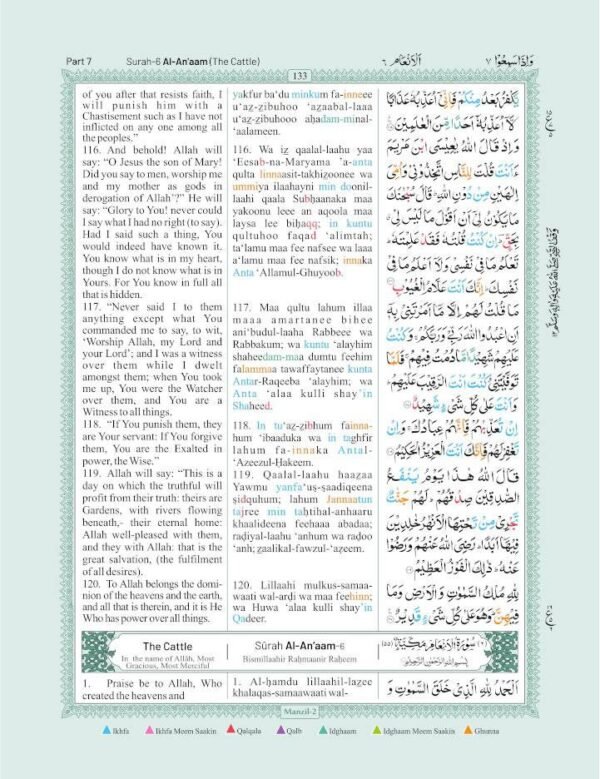 Part 7
Surah-6 Al-An'aam (The Cattle)
اَلْاَنْعَام ٦
وَاِذَا سَمِعُوْا ٧
133
of you after that resists faith, I
will punish him with a
Chastisement such as I have not
inflicted on any one among all
the peoples."
116. And behold! Allah will
say: "O Jesus the son of Mary!
Did you say to men, worship me
and my mother as gods in
derogation of Allah'?" He will
say: "Glory to You! never could
I say what I had no right (to say).
Had I said such a thing, You
would indeed have known it.
You know what is in my heart,
though I do not know what is in
Yours. For You know in full all
that is hidden.
117. "Never said I to them
anything except what You
commanded me to say, to wit,
'Worship Allah, my Lord and
your Lord'; and I was a witness
over them while I dwelt
amongst them; when You took
me up, You were the Watcher
over them, and You are a
Witness to all things.
118. "If You punish them, they
are Your servant: If You forgive
them, You are the Exalted in
power, the Wise."
119. Allah will say: "This is a
day on which the truthful will
profit from their truth: theirs are
Gardens, with rivers flowing
beneath,- their eternal home:
Allah well-pleased with them,
and they with Allah: that is the
great salvation, (the fulfilment
of all desires).
120. To Allah belongs the domi-
nion of the heavens and the earth,
and all that is therein, and it is He
Who has power over all things.
yakfur ba'du minkum fa-inneee
u'aẓ-ẓibuhoo 'aẓaabal-laaa
u'aẓ-ẓibuhooo aḥadam-minal-
'aalameen.
116. Wa iẓ qaalal-laahu yaa
'Eesab-na-Maryama 'a-anta
qulta linnaasit-takhiẓoonee wa
ummiya ilaahayni min doonil-
laahi qaala Subḥaanaka maa
yakoonu leee an aqoola maa
laysa lee biḥaqq; in kuntu
qultuhoo faqad 'alimtah;
ta'lamu maa fee nafsee wa laaa
a'lamu maa fee nafsik; innaka
Anta 'Allamul-Ghuyoob.
117. Maa qultu lahum illaa
maaa amartanee bihee
ani'budul-laaha Rabbeee wa
Rabbakum; wa kuntu 'alayhim
shaheedam-maa dumtu feehim
falammaa tawaffaytanee kunta
Antar-Raqeeba 'alayhim; wa
Anta 'alaa kulli shay'in
Shaheed.
118. In tu'aẓ-ẓibhum fainna-
hum 'ibaaduka wa in taghfir
lahum fa-innaka Antal-
'Azeezul-Ḥakeem.
119. Qaalal-laahu haaẓaa
Yawmu yanfa'uṣ-ṣaadiqeena
ṣidquhum; lahum Jannaatun
tajree min taḥtihal-anhaaru
khaalideena feehaaa abadaa;
raḍiyal-laahu 'anhum wa raḍoo
'anh; ẓaalikal-fawzul-'aẓeem.
120. Lillaahi mulkus-samaa-
waati wal-arḍi wa maa feehinn;
wa Huwa 'alaa kulli shay'in
Qadeer.
يَّكْفُرْ بَعْدُ مِنْكُمْ فَاِنِّيْٓ اُعَذِّبُهٗ عَذَابًا
لَّآ اُعَذِّبُهٗٓ اَحَدًا مِّنَ الْعٰلَمِيْنَ
وَاِذْ قَالَ اللّٰهُ يٰعِيْسَى ابْنَ مَرْيَمَ
ءَاَنْتَ قُلْتَ لِلنَّاسِ اتَّخِذُوْنِيْ وَاُمِّيَ
اِلٰهَيْنِ مِنْ دُوْنِ اللّٰهِ ؕ قَالَ سُبْحٰنَكَ
مَا يَكُوْنُ لِيْٓ اَنْ اَقُوْلَ مَا لَيْسَ لِيْ
بِحَقٍّ ؕ اِنْ كُنْتُ قُلْتُهٗ فَقَدْ عَلِمْتَهٗ ؕ
تَعْلَمُ مَا فِيْ نَفْسِيْ وَلَآ اَعْلَمُ مَا فِيْ
نَفْسِكَ ؕ اِنَّكَ اَنْتَ عَلَّامُ الْغُيُوْبِ
مَا قُلْتُ لَهُمْ اِلَّا مَآ اَمَرْتَنِيْ بِهٖٓ
اَنِ اعْبُدُوا اللّٰهَ رَبِّيْ وَرَبَّكُمْ ۚ وَكُنْتُ
عَلَيْهِمْ شَهِيْدًا مَّا دُمْتُ فِيْهِمْ ۚ فَلَمَّا
تَوَفَّيْتَنِيْ كُنْتَ اَنْتَ الرَّقِيْبَ عَلَيْهِمْ ؕ
وَاَنْتَ عَلٰى كُلِّ شَيْءٍ شَهِيْدٌ
اِنْ تُعَذِّبْهُمْ فَاِنَّهُمْ عِبَادُكَ ۚ وَاِنْ
تَغْفِرْ لَهُمْ فَاِنَّكَ اَنْتَ الْعَزِيْزُ الْحَكِيْمُ
قَالَ اللّٰهُ هٰذَا يَوْمُ يَنْفَعُ
الصّٰدِقِيْنَ صِدْقُهُمْ ؕ لَهُمْ جَنّٰتٌ
تَجْرِيْ مِنْ تَحْتِهَا الْاَنْهٰرُ خٰلِدِيْنَ
فِيْهَآ اَبَدًا ؕ رَضِيَ اللّٰهُ عَنْهُمْ وَرَضُوْا
عَنْهُ ؕ ذٰلِكَ الْفَوْزُ الْعَظِيْمُ
لِلّٰهِ مُلْكُ السَّمٰوٰتِ وَالْاَرْضِ وَمَا
فِيْهِنَّ ؕ وَهُوَ عَلٰى كُلِّ شَيْءٍ قَدِيْرٌ
The Cattle
In the name of Allâh, Most
Gracious, Most Merciful
Sûrah Al-An'aam-6
Bismillaahir Rahmaanir Raheem
(٦) سُوْرَةُ الْاَنْعَامِ مَكِّيَّةٌ (٥٥)
بِسْمِ اللّٰهِ الرَّحْمٰنِ الرَّحِيْمِ
1. Praise be to Allah, Who
created the heavens and
1. Al-ḥamdu lillaahil-laẓee
khalaqas-samaawaati wal-
اَلْحَمْدُ لِلّٰهِ الَّذِيْ خَلَقَ السَّمٰوٰتِ وَ
Manzil-2
Ikhfa
Ikhfa Meem Saakin
Qalqala
Qalb
Idghaam
Idghaam Meem Saakin
Ghunna